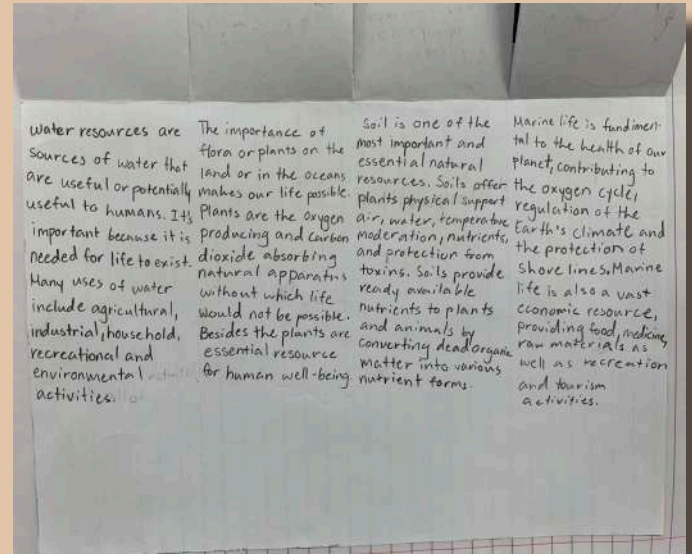 water resources are
sources of water that
are useful or potentially
useful to humans. It's
important because it is
needed for life to exist.
Many uses of water
include agricultural,
industrial, household,
recreational and
environmental
activities.
The importance of
flora or plants on the
land or in the oceans
makes our life possible.
Plants are the oxygen
producing and Carbon
dioxide absorbing
natural apparatus
without which life
would not be possible.
Besides the plants are
essential resource
for human well-being.
Soil is one of the
most important and
essential natural
resources. Soils offer
plants physical support
air, water, temperature
moderation, nutrients,
and protection from
toxins. Soils provide
ready available
nutrients to plants
and animals by
converting dead organic
matter into various
nutrient forms.
Marine life is fundimen-
tal to the health of our
planet, contributing to
the oxygen cycle,
regulation of the
Earth's climate and
the protection of
shore lines. Marine
life is also a vast
economic resource,
providing food, medicine,
raw materials as
well as recreation
and tourism
activities.